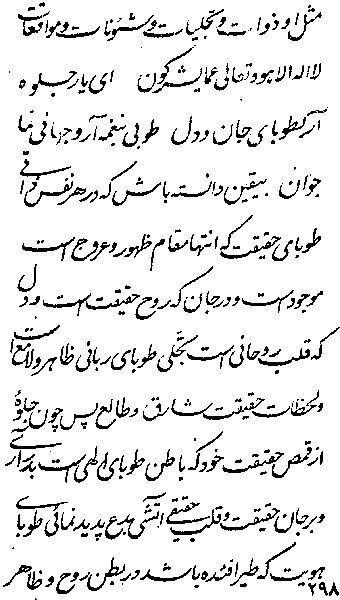 مثل او ذوات و تجلیات و شئونات و مواقعات
لا اله الا هو و تعالی عما یشرکون ای یار جلوه
آر که طوبای جان و دل طوبی نغمه آر و جهانی نما
جوان بیقین دانسته باش که در هر نفس ذاتی
طوبای حقیقت که انتها مقام ظهور و عروج است
موجود است و در جان که روح حقیقت است و دل
که قلب روحانی است تجلی طوبای ربانی ظاهر و لامع است
و لحظات حقیقت شارق و طالع پس چون جلوهٔ
از قمص حقیقت خود که باطن طوبای الهی است بدر آری
و بر جان حقیقت و قلب حقیقی آتشی بدع پدید نمائی طوبای
هویت که طیر افئده باشد در بطن روح و ظاهر
۲۹۸